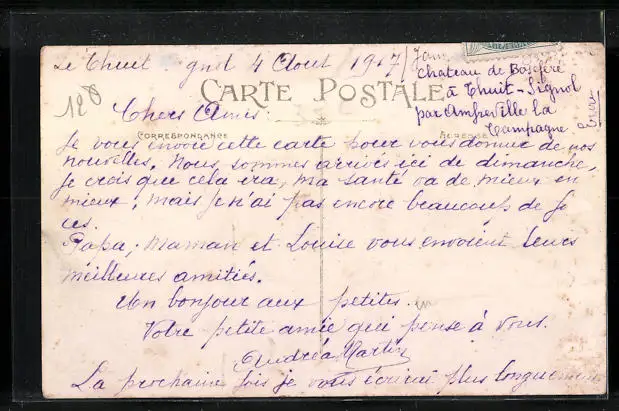 Le Thuit Signol 4 Aout 1917
chateau de Boscferé
à Thuit-Signol
par Amfreville la
Campagne
128
CARTE POSTALE
Chers Amis.
CORRESPONDANCE
ADRESSE
Je vous envoie cette carte pour vous donner de nos
nouvelles. Nous sommes arrivés ici de dimanche,
je crois que cela ira, ma santé va de mieux en
mieux, mais je n'ai pas encore beaucoup de fo
ces.
Papa, Maman et Louise vous envoient leurs
meilleures amitiés.
Un bonjour aux petites.
Votre petite amie qui pense à vous.
Andréa Martin
La prochaine fois je vous écrirai plus longuement